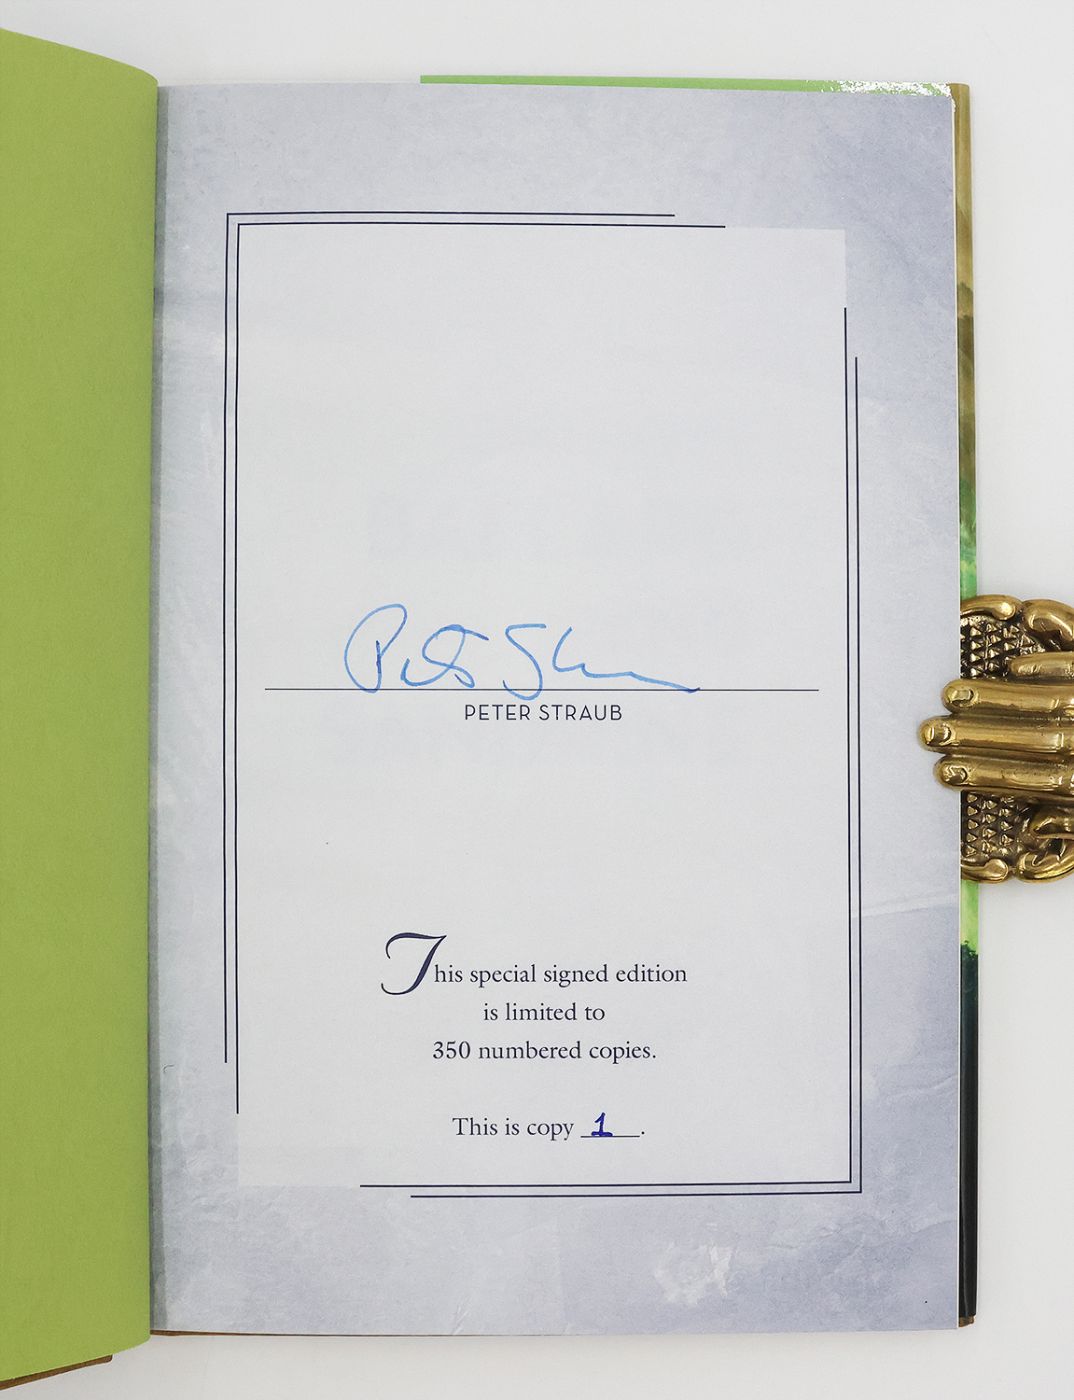 Peter Straub
PETER STRAUB
This special signed edition
is limited to
350 numbered copies.
This is copy 1.